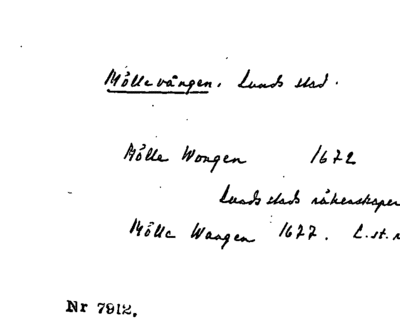 Möllevången. Lunds stad.
Mölle Wongen 1672
Lunds stads räkenskaper
Mölle Wangen 1677. L. st. r
Nr 7912.